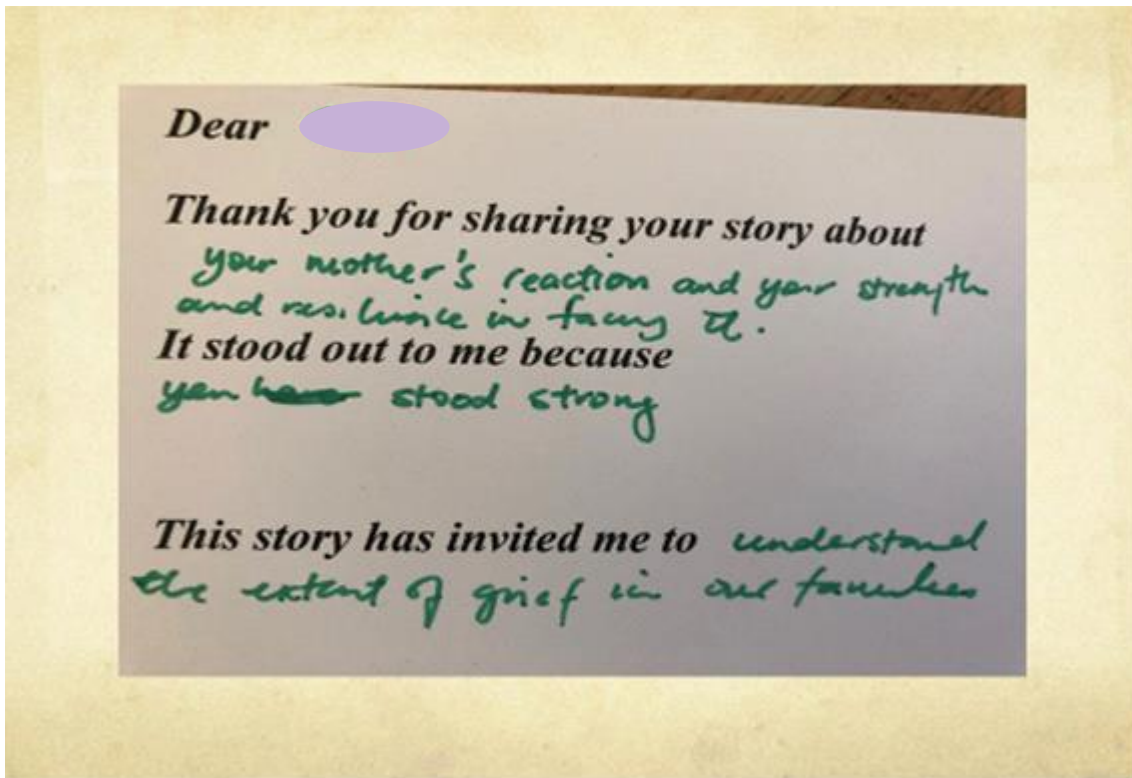 Dear
Thank you for sharing your story about
your mother's reaction and your strength
and resilience in facing it.
It stood out to me because
you stood strong
This story has invited me to understand
the extent of grief in our families